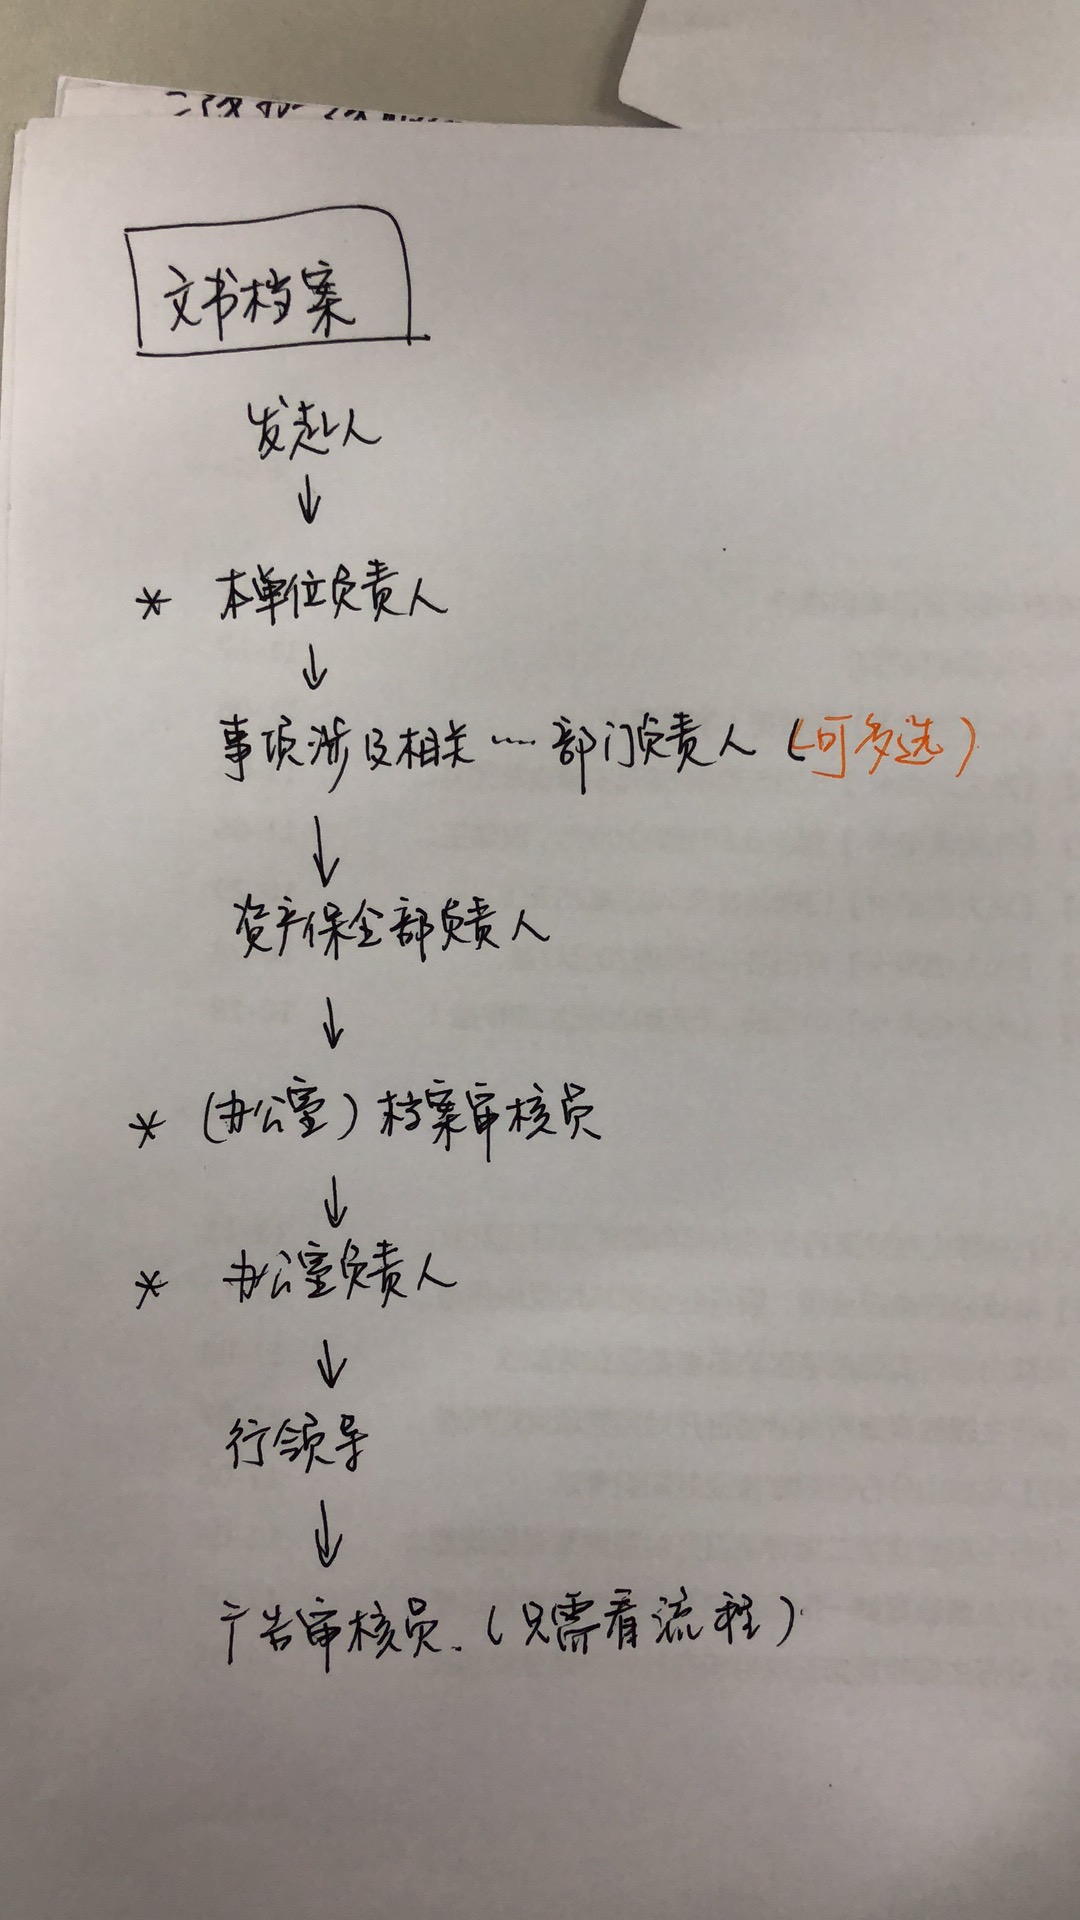 文书档案
发起人
↓
* 本单位负责人
↓
事项涉及相关……部门负责人(可多选)
↓
资产保全部负责人
↓
* (办公室)档案审核员
↓
* 办公室负责人
↓
行领导
↓
广告审核员.(只需看流程)